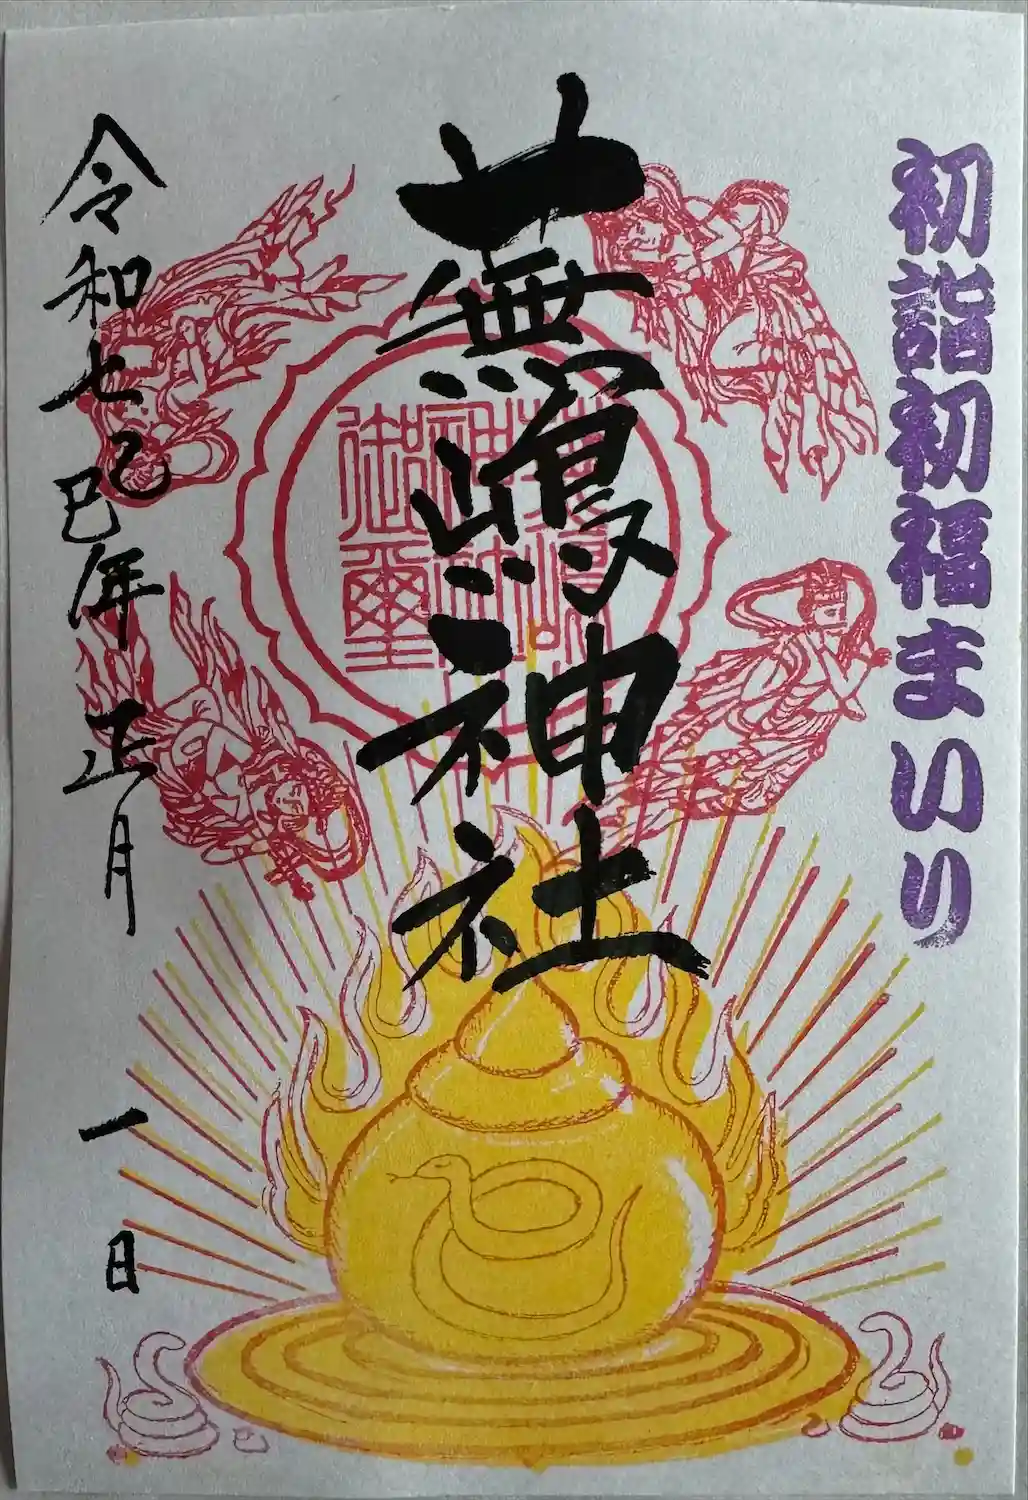 初詣初福まいり
蕪嶋神社
蕪嶋
神社
御璽
令和七乙巳年正月一日